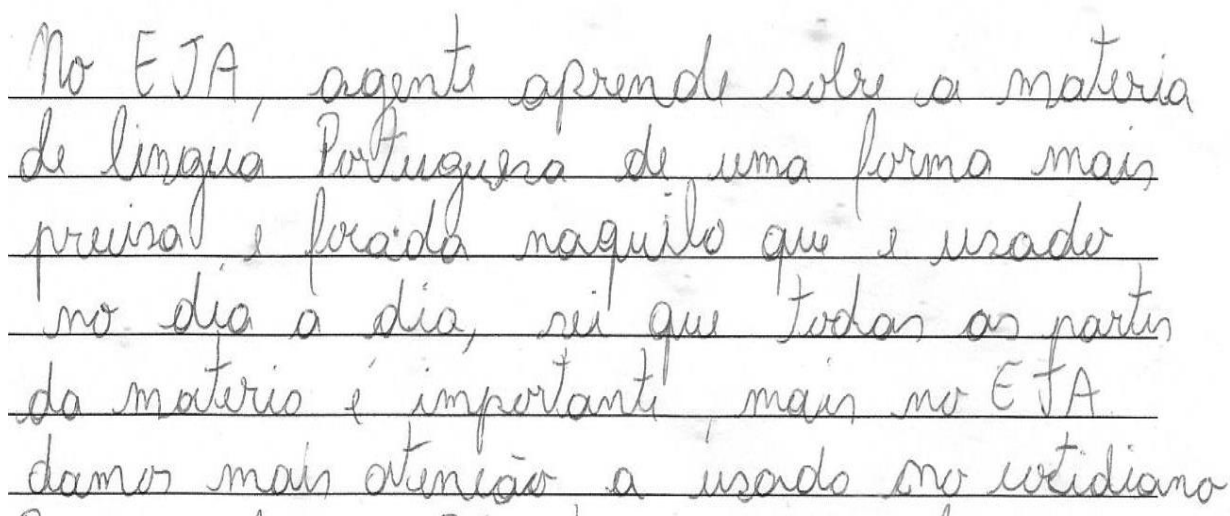 No EJA, agente aprende sobre a materia
de lingua Portuguesa de uma forma mais
precisa e focada naquilo que e usado
no dia a dia, sei que todas as partes
da materia é importante, mais no EJA
damos mais atenção a usado no cotidiano